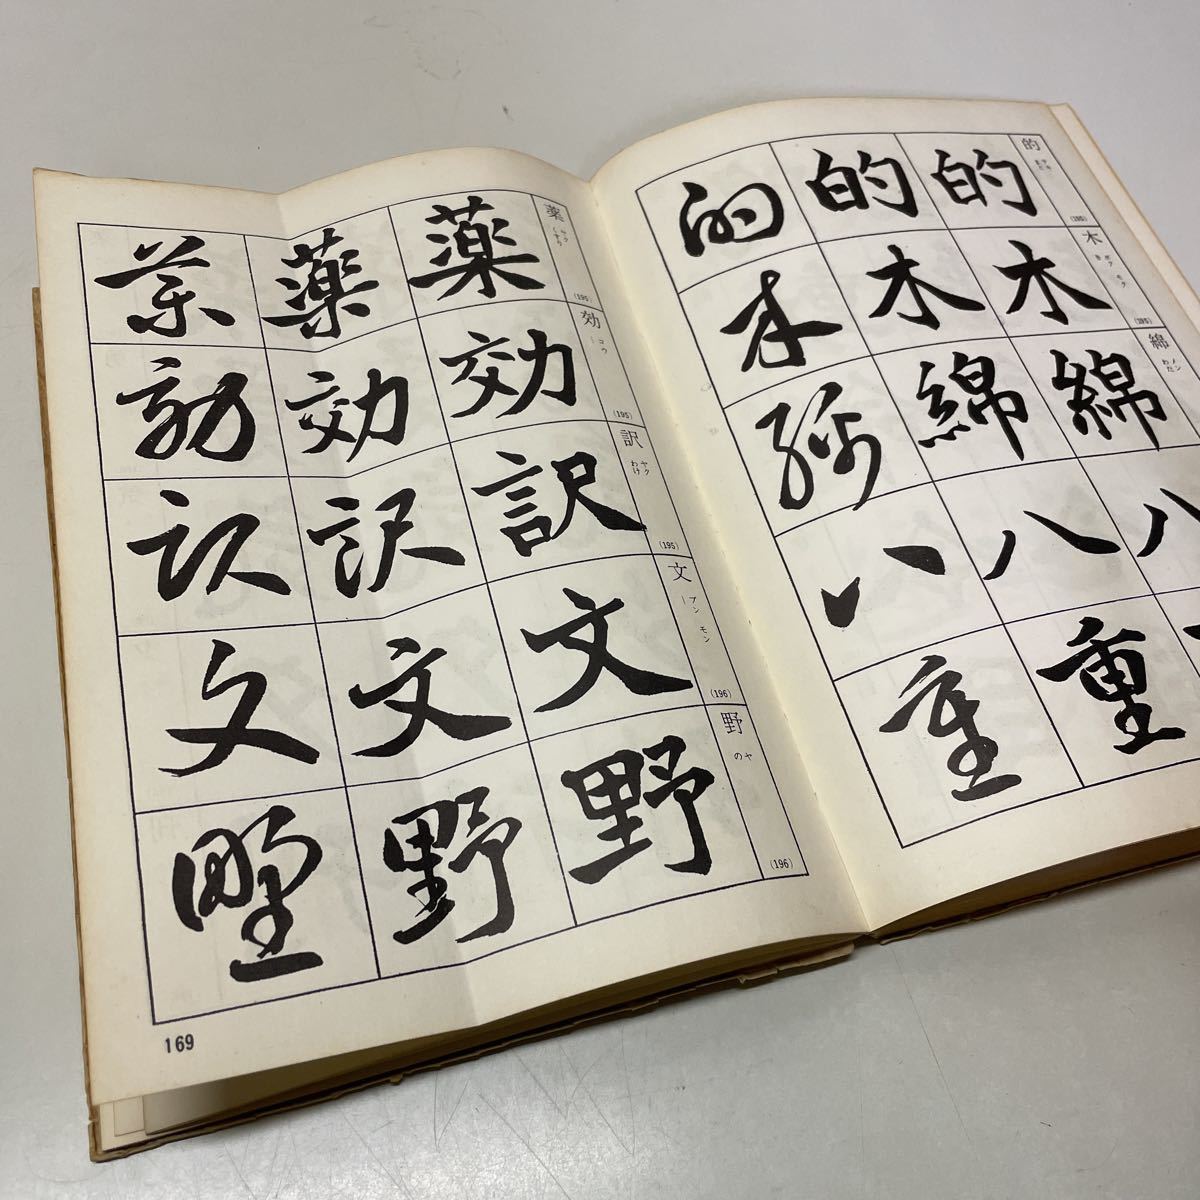 的 的 的 的
(185)
木 ボク モク き 木 木 木
(185)
綿 メン わた 綿 綿 綿
八 八 八
重 重
薬 ヤク くすり 薬 薬 薬
(195)
効 コウ 効 効 効
(195)
訳 ヤク わけ 訳 訳 訳
(195)
文 ブン モン 文 文 文
(196)
野 ヤ の 野 野 野
(196)
169